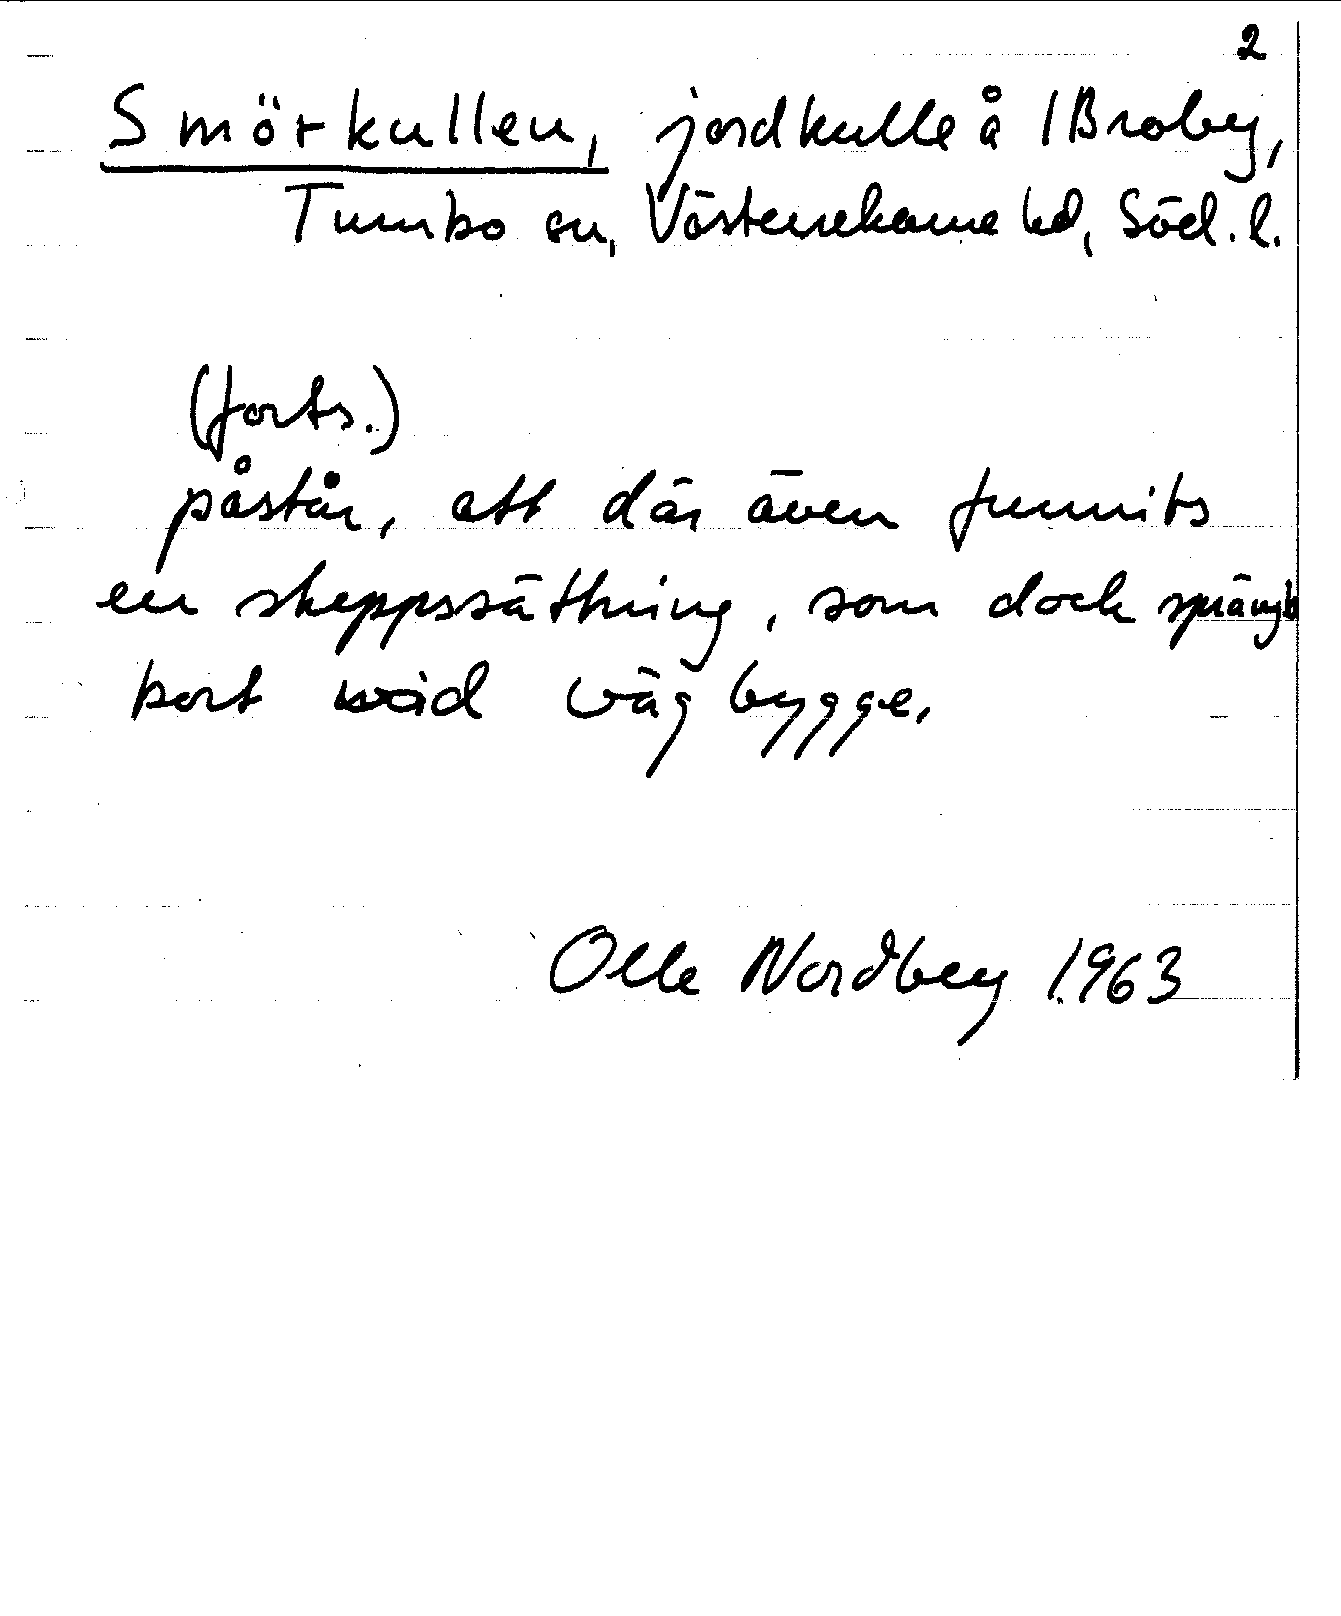 2
Smörkullen, jordkulle å 1 Broby,
Tumbo sn, Västerrekarne hd, Söd. l.
(forts.)
påstår, att där även funnits
en skeppssättning, som dock sprängts
bort vid vägbygge.
Olle Nordberg 1963